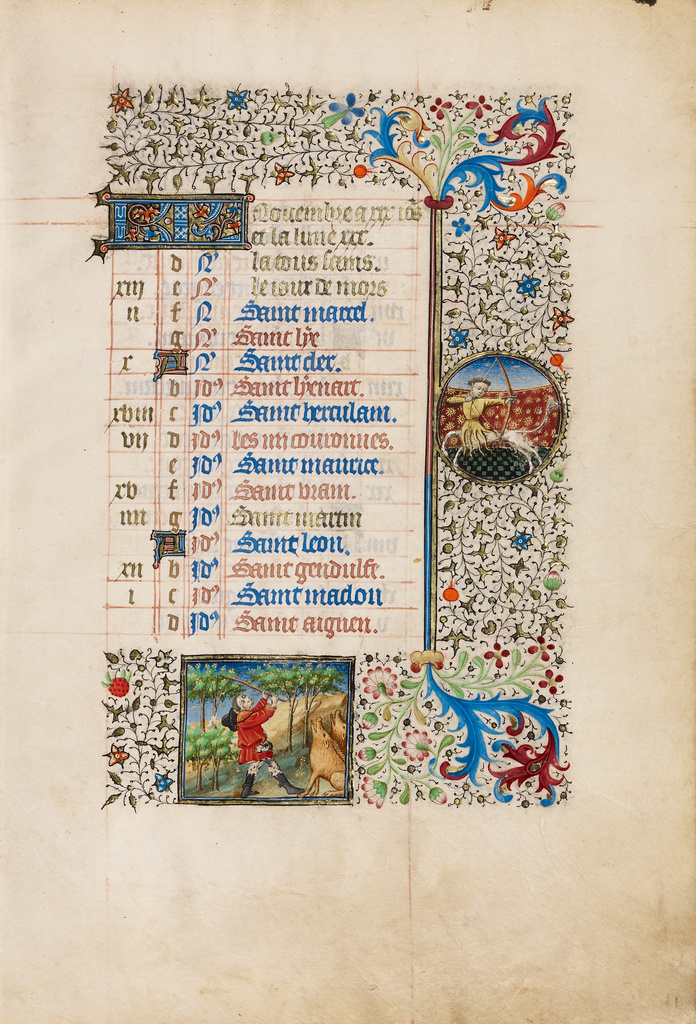 Nouembre a xxx io's
et la lune xxx.
d N' la tous sains.
xiii e N' le iour de mors
ii f N' Saint marcel.
g N' Saint lye
x A N' Saint cler.
b Id' Saint lyenart.
xviii c Id' Saint herculam.
vii d Id' les iiii couronnes.
e Id' Saint maurice.
xv f Id' Saint vrain.
iiii g Id' Saint martin
A Id' Saint leon.
xii b Id' Saint gendulfe.
i c Id' Saint maclou
d Id' Saint aignen.